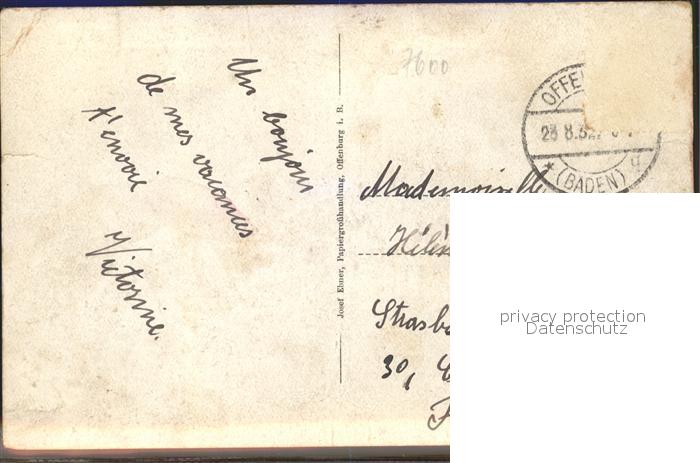 Un bonjour
de mes vacances
t'envoie
Victorine.
Josef Ebner, Papiergroßhandlung, Offenburg i. B.
7600
OFFE
23 8.32
* (BADEN) d
Mademoiselle
Hélèn
Strasbo
30,
privacy protection
Datenschutz